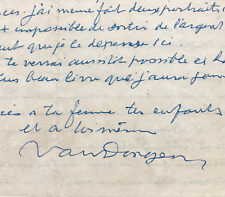 ces. j'ai même fait deux portraits
impossible de sortir de l'argent
faut que je le dépense ici.
te verrai aussitôt possible et
beau livre que j'aurai
à ta femme tes enfants
et à toi même
Van Dongen